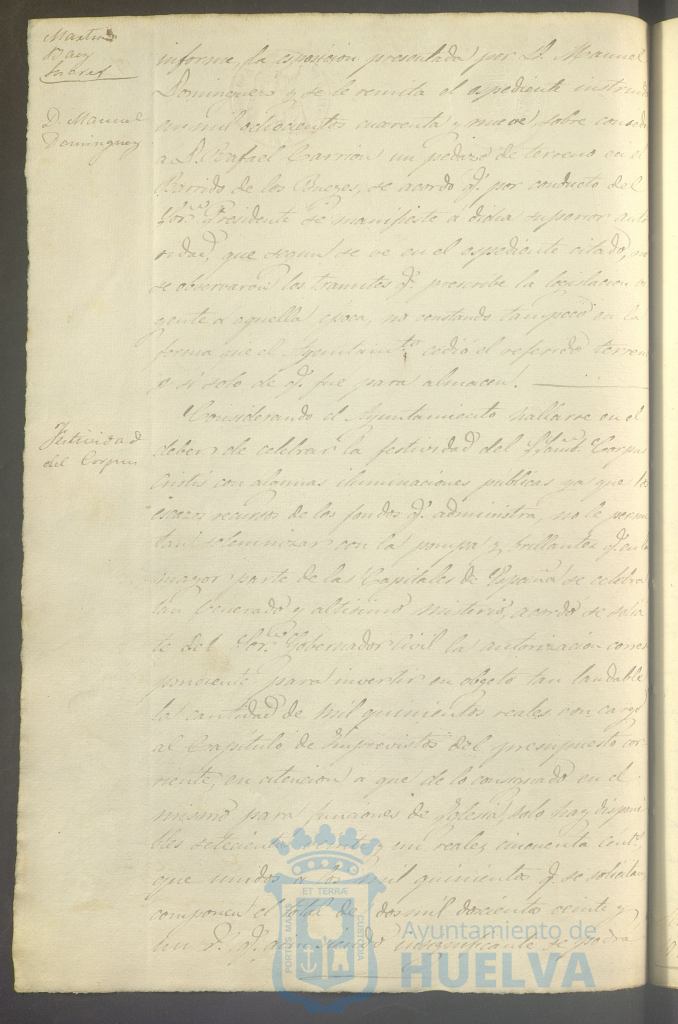 Martin
Baez
Suarez
D. Manuel
Dominguez
informe la esposicion presentada por D. Manuel
Dominguez y se le remita el espediente instruido
en mil ochocientos cuarenta y nueve, sobre
a D. Rafael Carrion un pedazo de terreno en el
de los Bueyes, se acordó q.e por conducto del
Sor. Presidente se manifieste á dicha superior auto
ridad, que segun se ve en el espediente citado, no
se observaron los tramites q.e prescribe la legislacion vi
gente á aquella epoca, no constando tampoco en la
forma que el Ayuntam.to cedió el referido terreno
y si solo de q.e fue para almacen.
Festividad
del Corpus
Considerando el Ayuntamiento hallarse en el
deber de celebrar la festividad del Corpus
Cristi con algunas iluminaciones publicas ya que los
escasos recursos de los fondos q.e administra, no le permi
tan solemnizar con la pompa y brillantez q.e en la
mayor parte de las Capitales de España se celebra
tan venerado y altisimo misterio, acordó se solici
te del Sor. Gobernador Civil la autorizacion corres
pondiente para invertir en objeto tan laudable
la cantidad de mil quinientos reales con cargo
al Capitulo de Imprevistos del presupuesto cor
riente, en atencion a que de lo consignado en el
mismo para funciones de Yglesia, solo hay disponi
bles setecientos veinte y un reales cincuenta cent.s
que unidos a los mil quinientos q.e se solicitan
componen el total de dos mil doscientos veinte y
un r.s q.e aun siendo insignificante se podrá
PORTUS MARIS
ET TERRÆ
CUSTODIA
Ayuntamiento de
HUELVA